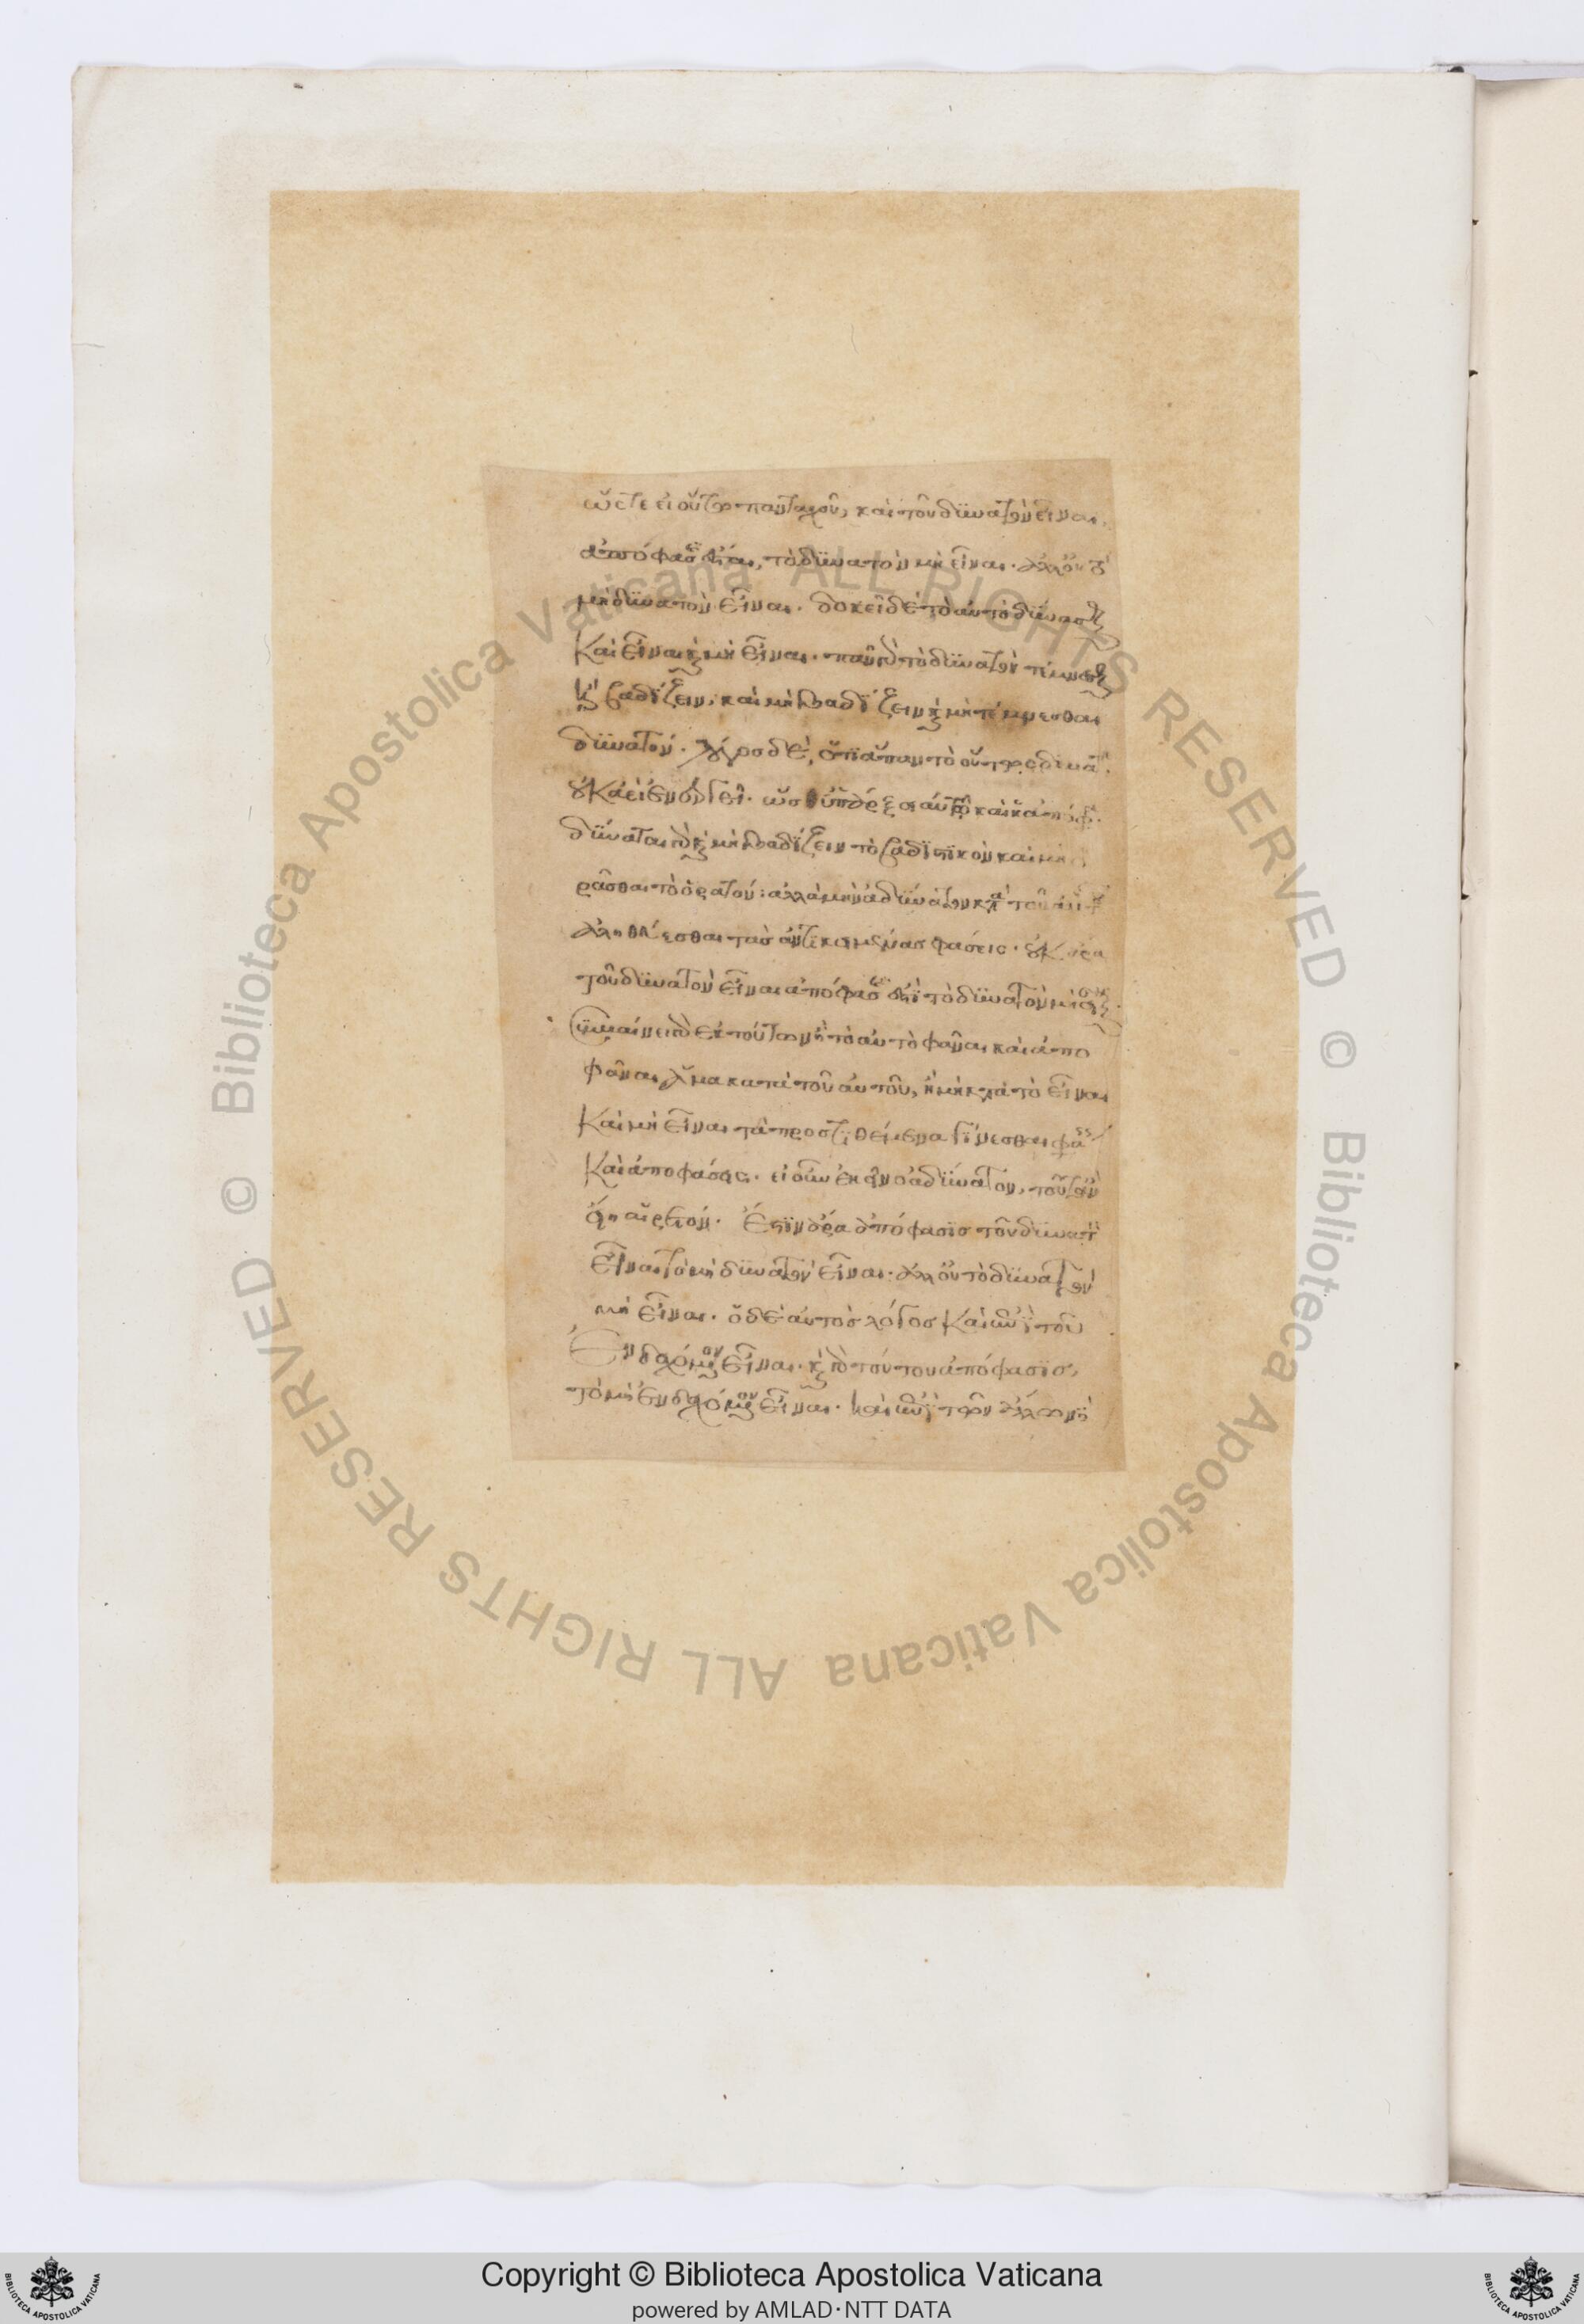 ὥστε εἰ οὕτω πανταχοῦ, καὶ τοῦ δυνατὸν εἶναι
ἀπόφασις ἔσται, τὸ δυνατὸν μὴ εἶναι. ἀλλ' οὐ τὸ
μὴ δυνατὸν εἶναι. δοκεῖ δὲ τὸ αὐτὸ δύνασθαι
καὶ εἶναι καὶ μὴ εἶναι. πᾶν γὰρ τὸ δυνατὸν τέμνεσθαι
ἢ βαδίζειν, καὶ μὴ βαδίζειν καὶ μὴ τέμνεσθαι
δυνατόν. λόγος δὲ, ὅτι ἅπαν τὸ οὕτω δυνατὸν.
οὐκ ἀεὶ ἐνεργεῖ. ὥσθ' ὑπάρξει αὐτῷ καὶ ἡ ἀπόφασις.
δύναται γὰρ καὶ μὴ βαδίζειν τὸ βαδιστικὸν καὶ μὴ ὁ
ρᾶσθαι τὸ ὁρατόν: ἀλλὰ μὴν ἀδύνατον κατὰ τοῦ αὐτοῦ
ἀληθεύεσθαι τὰς ἀντικειμένας φάσεις. οὐκ ἄρα
τοῦ δυνατὸν εἶναι ἀπόφασις ἐστὶ τὸ δυνατὸν μὴ εἶναι.
συμβαίνει γὰρ ἐκ τούτων ἢ τὸ αὐτὸ φάναι καὶ ἀπο
φάναι ἅμα κατὰ τοῦ αὐτοῦ, ἢ μὴ κατὰ τὸ εἶναι
καὶ μὴ εἶναι τὰ προστιθέμενα γίνεσθαι φάσεις
καὶ ἀποφάσεις. εἰ οὖν ἐκεῖνο ἀδύνατον, τοῦτ' ἂν
εἴη αἱρετόν. ἔστιν ἄρα ἀπόφασις τοῦ δυνατὸν
εἶναι τὸ μὴ δυνατὸν εἶναι. ἀλλ' οὐ τὸ δυνατὸν
μὴ εἶναι. ὁ δὲ αὐτὸς λόγος καὶ περὶ τοῦ
ἐνδεχόμενον εἶναι. καὶ γὰρ τούτου ἀπόφασις,
τὸ μὴ ἐνδεχόμενον εἶναι. καὶ ἐπὶ τῶν ἄλλων